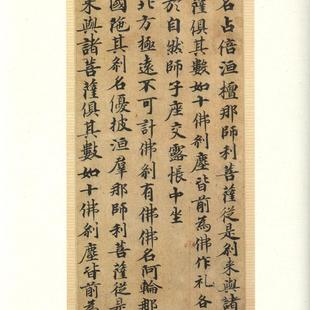 名占倍洹檀那師利菩薩從是刹来與諸
薩俱其數如十佛刹塵皆前為佛作礼各
於自然師子座交露帳中坐
北方極遠不可計佛刹有佛佛名阿輪那
國陁其刹名優披洹羣那師利菩薩從是
来與諸菩薩俱其數如十佛刹塵皆前為